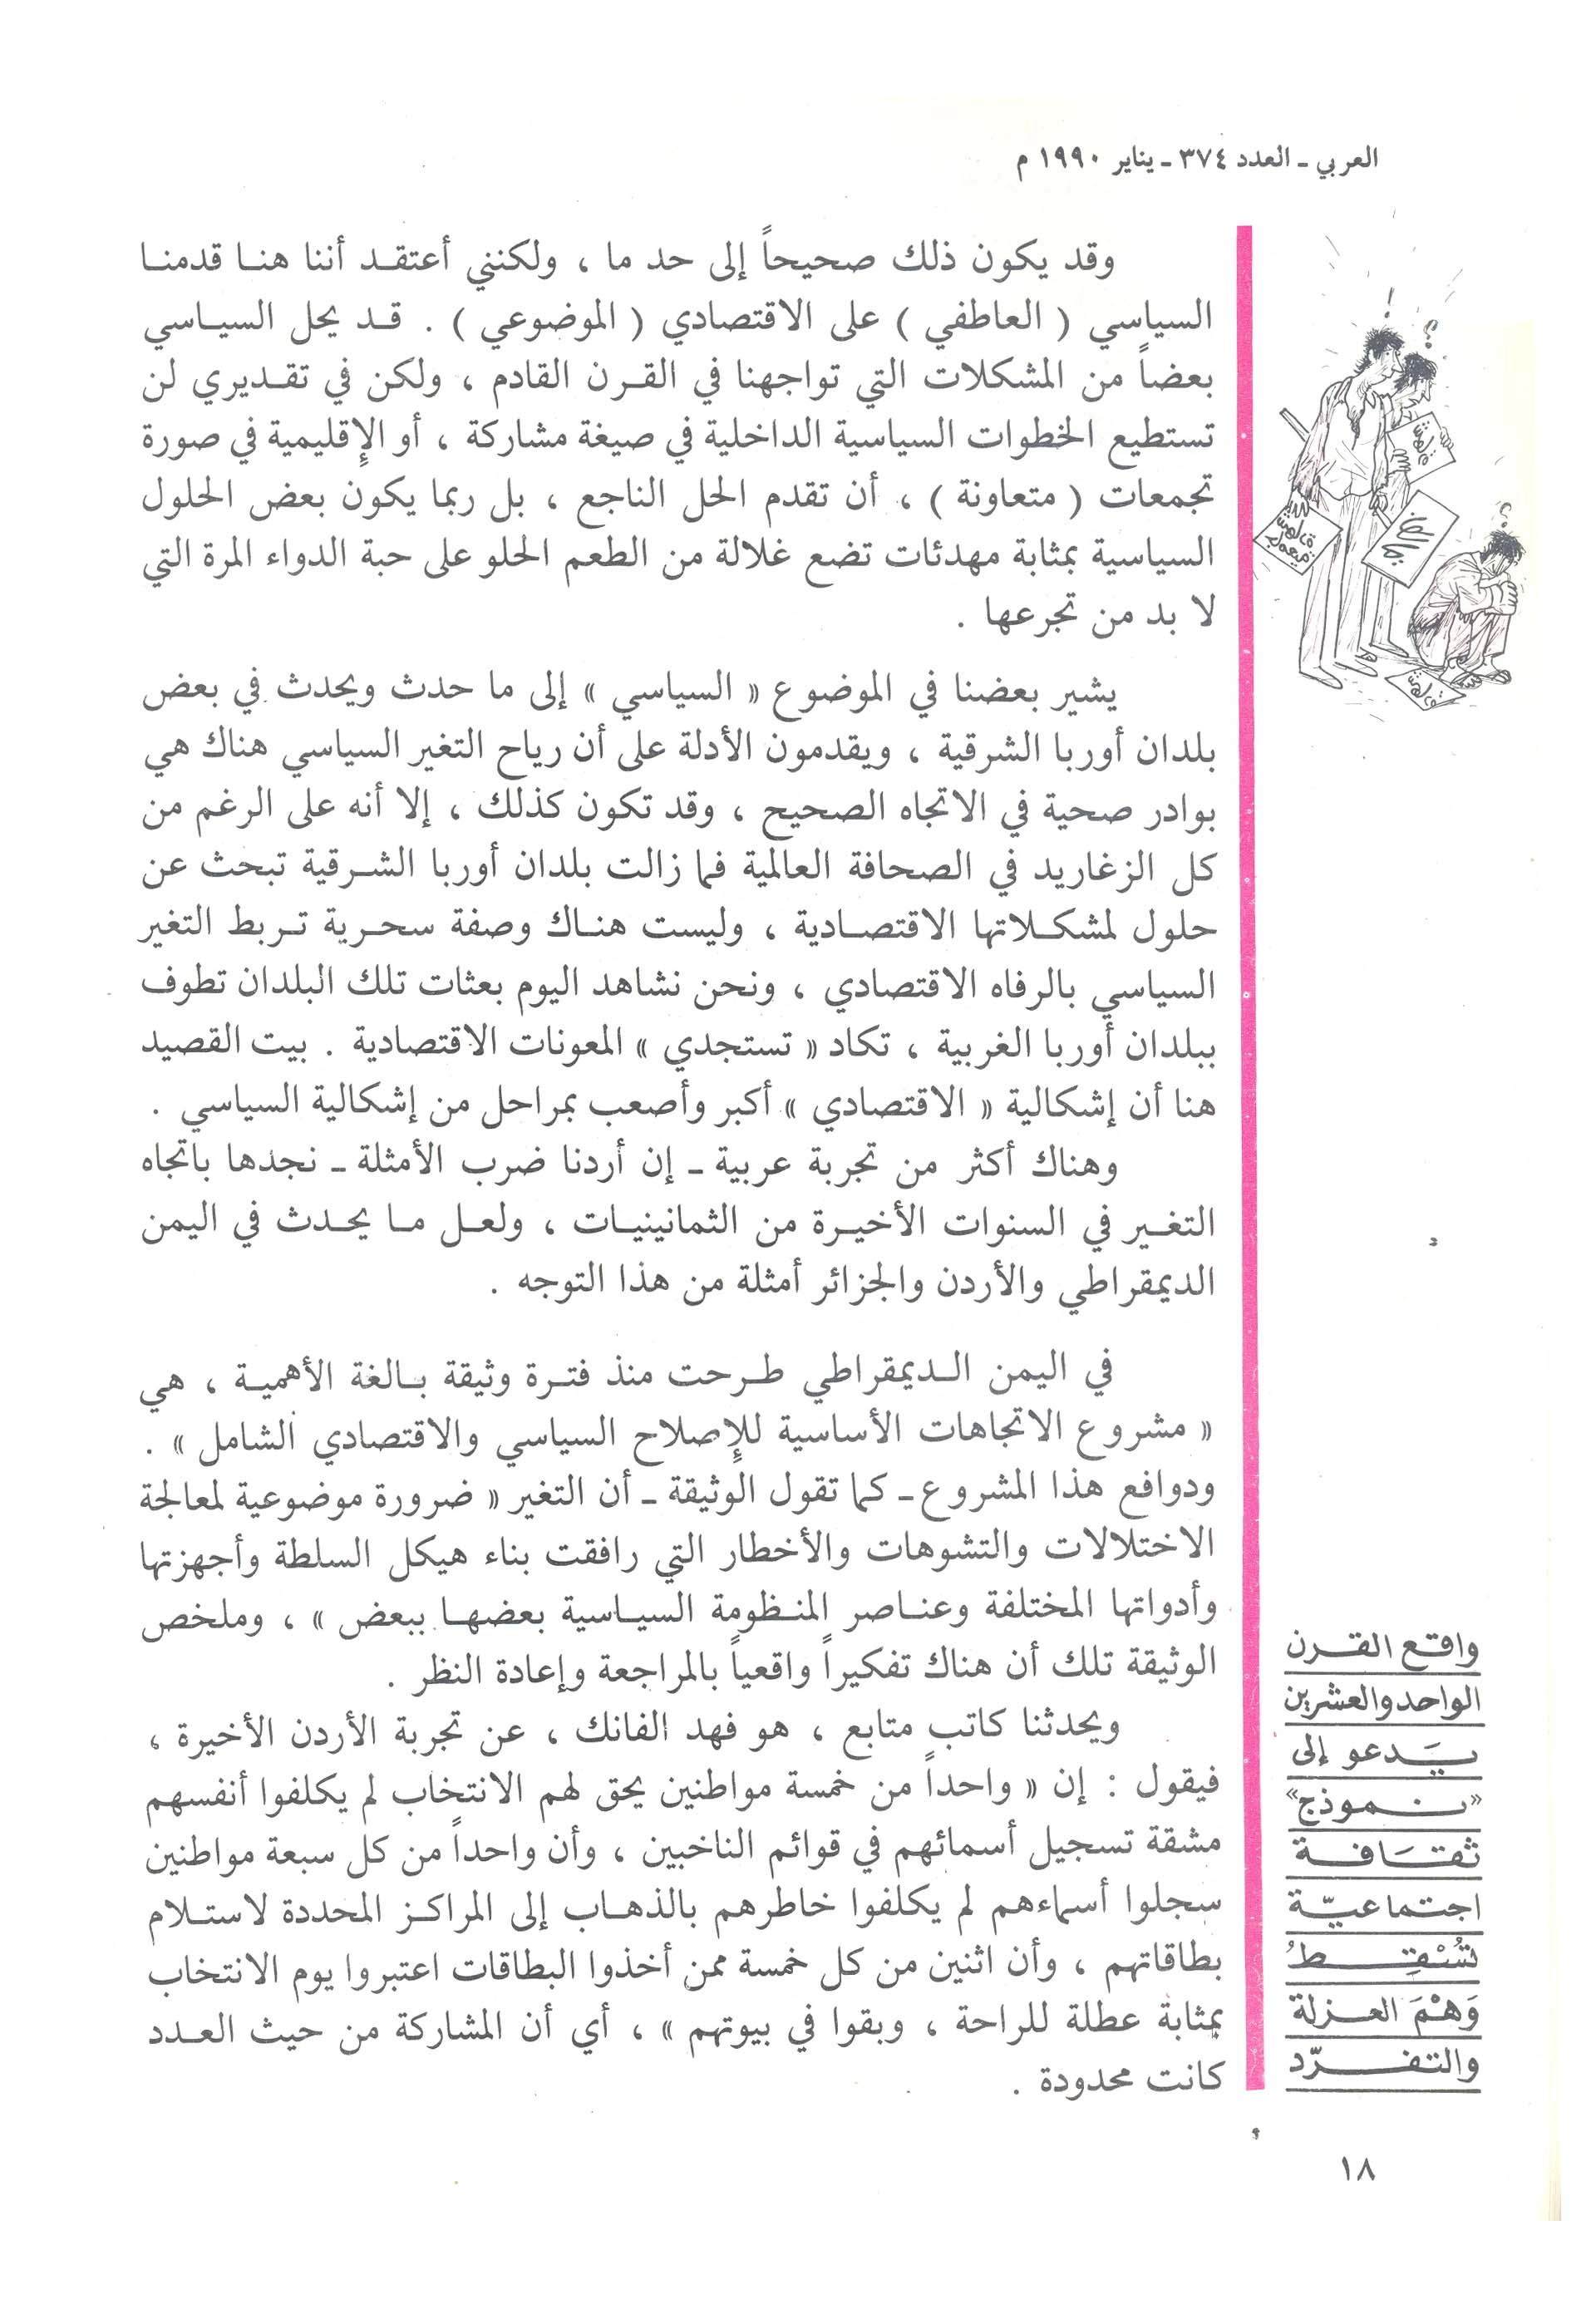 العربي ـ العدد ٣٧٤ ـ يناير ١٩٩٠ م
وقد يكون ذلك صحيحاً إلى حد ما ، ولكنني أعتقد أننا هنا قدمنا
السياسي ( العاطفي ) على الاقتصادي ( الموضوعي ) . قد يحل السياسي
بعضاً من المشكلات التي تواجهنا في القرن القادم ، ولكن في تقديري لن
تستطيع الخطوات السياسية الداخلية في صيغة مشاركة ، أو الإقليمية في صورة
تجمعات ( متعاونة ) ، أن تقدم الحل الناجع ، بل ربما يكون بعض الحلول
السياسية بمثابة مهدئات تضع غلالة من الطعم الحلو على حبة الدواء المرة التي
لا بد من تجرعها .
يشير بعضنا في الموضوع « السياسي » إلى ما حدث ويحدث في بعض
بلدان أوربا الشرقية ، ويقدمون الأدلة على أن رياح التغير السياسي هناك هي
بوادر صحية في الاتجاه الصحيح ، وقد تكون كذلك ، إلا أنه على الرغم من
كل الزغاريد في الصحافة العالمية فما زالت بلدان أوربا الشرقية تبحث عن
حلول لمشكلاتها الاقتصادية ، وليست هناك وصفة سحرية تربط التغير
السياسي بالرفاه الاقتصادي ، ونحن نشاهد اليوم بعثات تلك البلدان تطوف
ببلدان أوربا الغربية ، تكاد « تستجدي » المعونات الاقتصادية . بيت القصيد
هنا أن إشكالية « الاقتصادي » أكبر وأصعب بمراحل من إشكالية السياسي .
وهناك أكثر من تجربة عربية ـ إن أردنا ضرب الأمثلة ـ نجدها باتجاه
التغير في السنوات الأخيرة من الثمانينيات ، ولعل ما يحدث في اليمن
الديمقراطي والأردن والجزائر أمثلة من هذا التوجه .
في اليمن الديمقراطي طرحت منذ فترة وثيقة بالغة الأهمية ، هي
« مشروع الاتجاهات الأساسية للإصلاح السياسي والاقتصادي الشامل » .
ودوافع هذا المشروع ـ كما تقول الوثيقة ـ أن التغير « ضرورة موضوعية لمعالجة
الاختلالات والتشوهات والأخطار التي رافقت بناء هيكل السلطة وأجهزتها
وأدواتها المختلفة وعناصر المنظومة السياسية بعضها ببعض » ، وملخص
الوثيقة تلك أن هناك تفكيراً واقعياً بالمراجعة وإعادة النظر .
ويحدثنا كاتب متابع ، هو فهد الفانك ، عن تجربة الأردن الأخيرة ،
فيقول : إن « واحداً من خمسة مواطنين يحق لهم الانتخاب لم يكلفوا أنفسهم
مشقة تسجيل أسمائهم في قوائم الناخبين ، وأن واحداً من كل سبعة مواطنين
سجلوا أسماءهم لم يكلفوا خاطرهم بالذهاب إلى المراكز المحددة لاستلام
بطاقاتهم ، وأن اثنين من كل خمسة ممن أخذوا البطاقات اعتبروا يوم الانتخاب
بمثابة عطلة للراحة ، وبقوا في بيوتهم » ، أي أن المشاركة من حيث العدد
كانت محدودة .
واقع القرن
الواحد والعشرين
يَدعو إلى
«نموذج»
ثقَافة
اجتماعيّة
تُسْقِطُ
وَهْمَ العزلة
والتفرّد
١٨